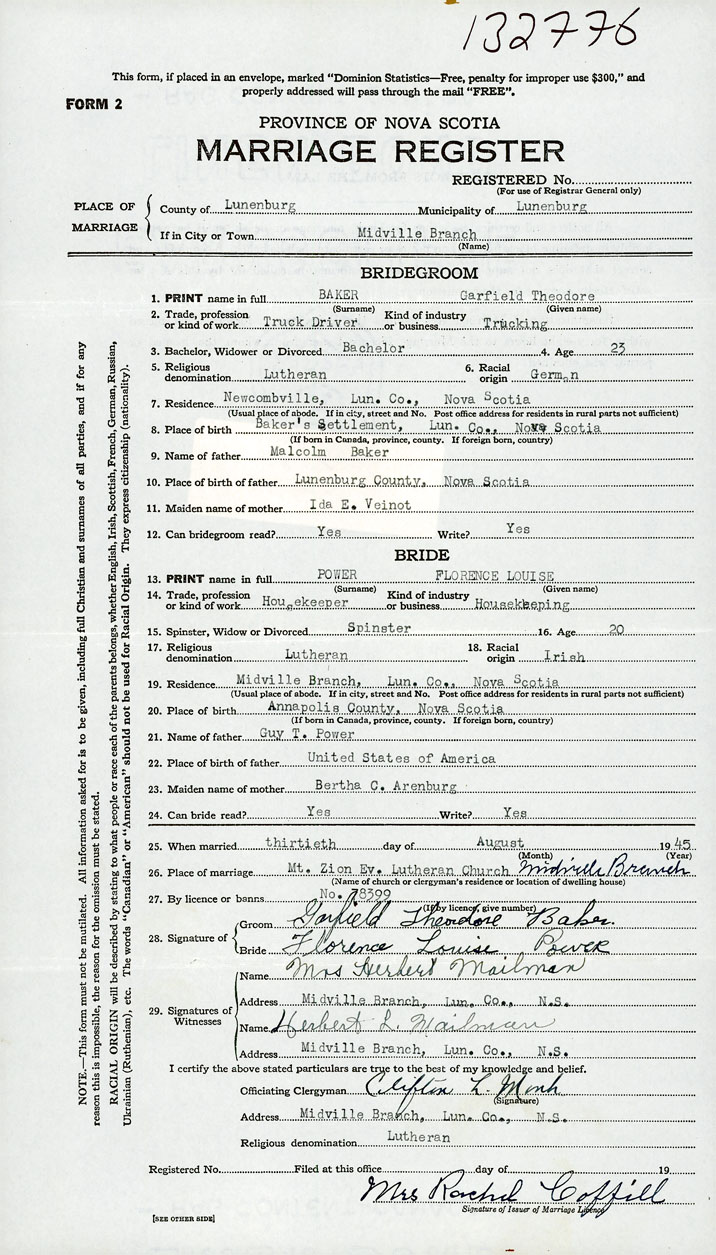 132776
This form, if placed in an envelope, marked “Dominion Statistics—Free, penalty for improper use $300,” and
properly addressed will pass through the mail “FREE”.
FORM 2
PROVINCE OF NOVA SCOTIA
MARRIAGE REGISTER
REGISTERED No.
(For use of Registrar General only)
PLACE OF MARRIAGE
County of Lunenburg Municipality of Lunenburg
If in City or Town Midville Branch
(Name)
BRIDEGROOM
1. PRINT name in full BAKER Garfield Theodore
(Surname) (Given name)
2. Trade, profession or kind of work Truck Driver Kind of industry or business Trucking
3. Bachelor, Widower or Divorced Bachelor 4. Age 23
5. Religious denomination Lutheran 6. Racial origin German
7. Residence Newcombville, Lun. Co., Nova Scotia
(Usual place of abode. If in city, street and No. Post office address for residents in rural parts not sufficient)
8. Place of birth Baker's Settlement, Lun. Co., Nova Scotia
(If born in Canada, province, county. If foreign born, country)
9. Name of father Malcolm Baker
10. Place of birth of father Lunenburg County, Nova Scotia
11. Maiden name of mother Ida E. Veinot
12. Can bridegroom read? Yes Write? Yes
BRIDE
13. PRINT name in full POWER FLORENCE LOUISE
(Surname) (Given name)
14. Trade, profession or kind of work Housekeeper Kind of industry or business Housekeeping
15. Spinster, Widow or Divorced Spinster 16. Age 20
17. Religious denomination Lutheran 18. Racial origin Irish
19. Residence Midville Branch, Lun. Co., Nova Scotia
(Usual place of abode. If in city, street and No. Post office address for residents in rural parts not sufficient)
20. Place of birth Annapolis County, Nova Scotia
(If born in Canada, province, county. If foreign born, country)
21. Name of father Guy T. Power
22. Place of birth of father United States of America
23. Maiden name of mother Bertha C. Arenburg
24. Can bride read? Yes Write? Yes
25. When married thirtieth day of August 1945
(Month) (Year)
26. Place of marriage Mt. Zion Ev. Lutheran Church Midville Branch
(Name of church or clergyman's residence or location of dwelling house)
27. By licence or banns No. 78399
(If by licence, give number)
28. Signature of
Groom Garfield Theodore Baker.
Bride Florence Louise Power
29. Signatures of Witnesses
Name Mrs Herbert Mailman
Address Midville Branch, Lun. Co., N.S.
Name Herbert L. Mailman
Address Midville Branch, Lun. Co., N.S.
I certify the above stated particulars are true to the best of my knowledge and belief.
Officiating Clergyman Clifton L. Monk
(Signature)
Address Midville Branch, Lun. Co., N.S.
Religious denomination Lutheran
Registered No. Filed at this office day of 19
Mrs Rachel Coffill
Signature of Issuer of Marriage Licence
[SEE OTHER SIDE]
NOTE.—This form must not be mutilated. All information asked for is to be given, including full Christian and surnames of all parties, and if for any
reason this is impossible, the reason for the omission must be stated.
RACIAL ORIGIN will be described by stating to what people or race each of the parents belongs, whether English, Irish, Scottish, French, German, Russian,
Ukrainian (Ruthenian), etc. The words “Canadian” or “American” should not be used for Racial Origin. They express citizenship (nationality).